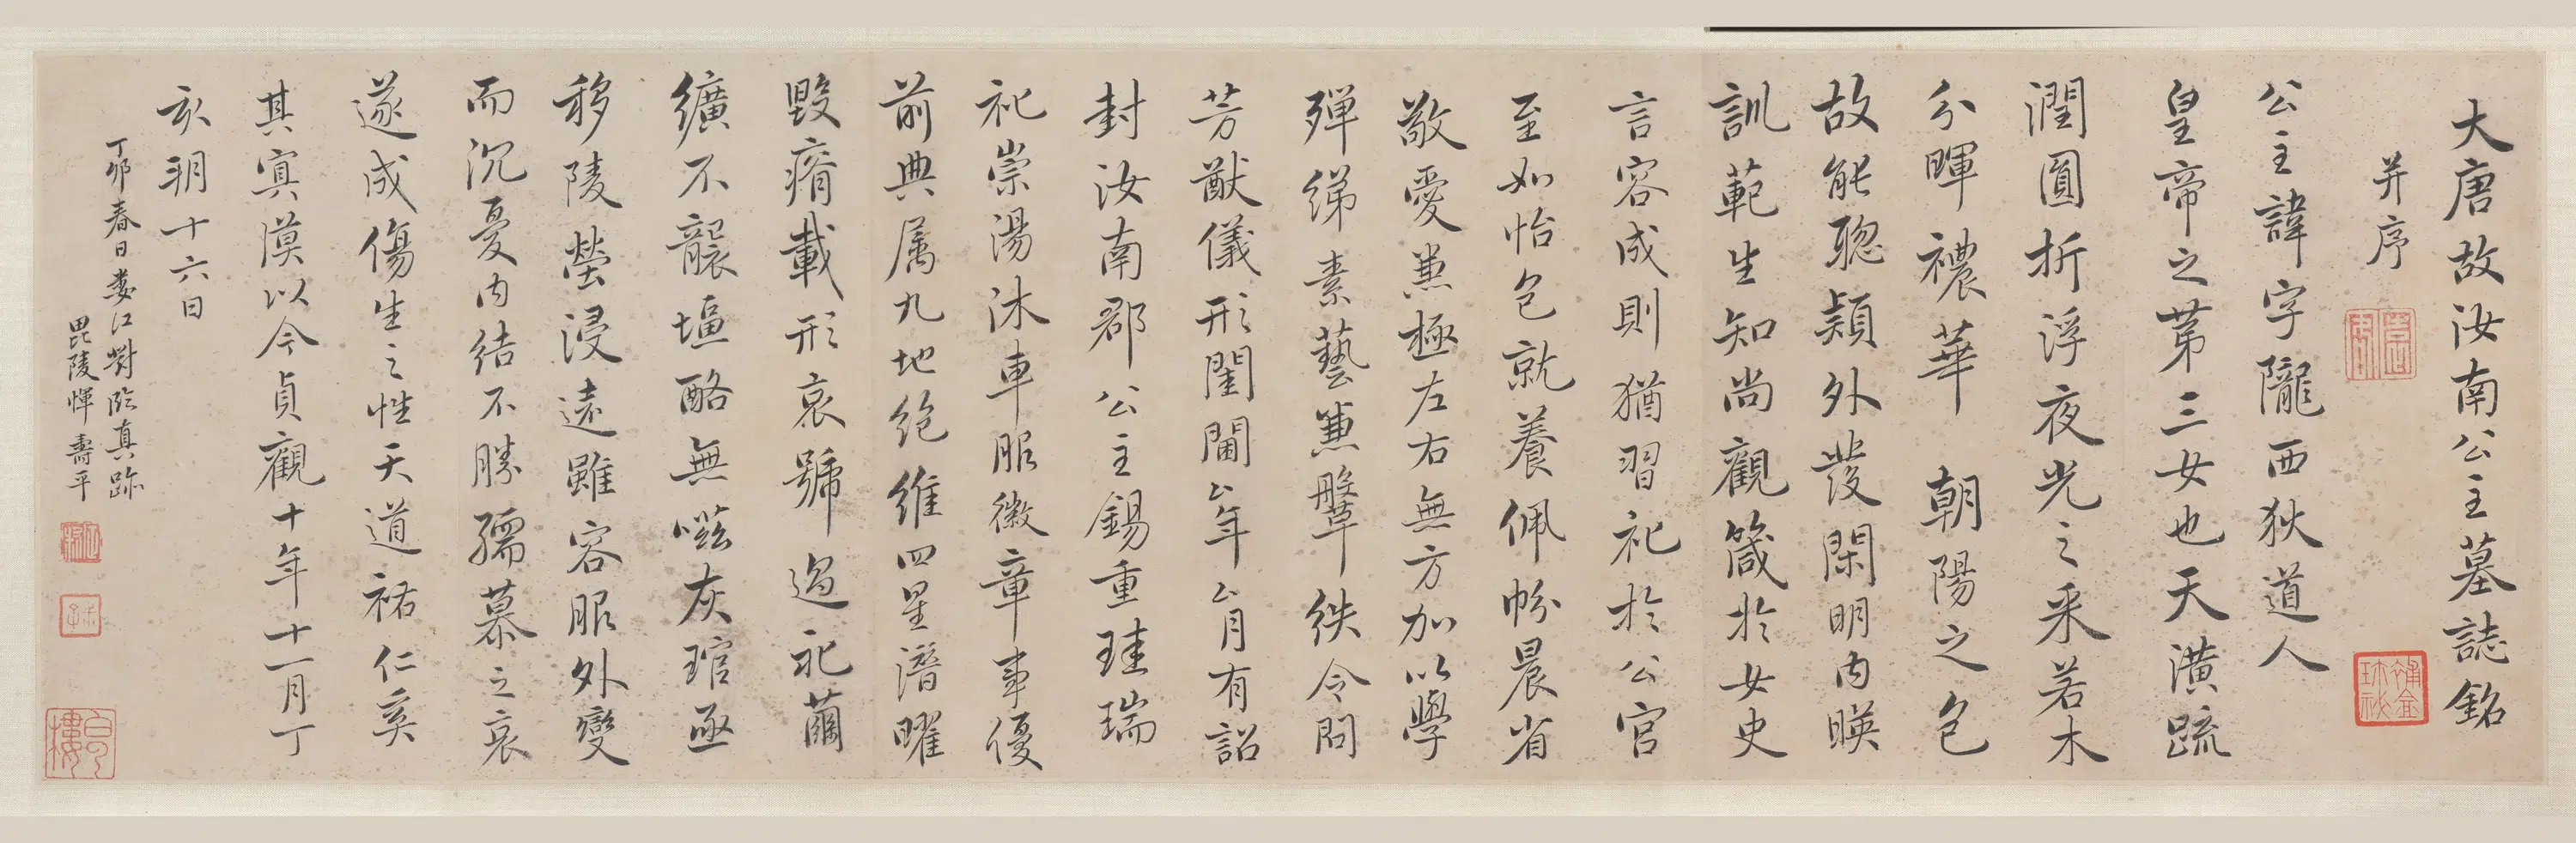 大唐故汝南公主墓誌銘
并序
公主諱字隴西狄道人
皇帝之第三女也天潢疏
潤圓折浮夜光之采若木
分暉穠華朝陽之色
故能聰穎外發閑明內暎
訓範生知尚觀箴於女史
言容成則猶習祀於公官
至如怡色就養佩帉晨省
敬愛兼極左右無方加以學
殫綈素藝兼鞶紩令問
芳猷儀形閨閫厶年厶月有詔
封汝南郡公主錫重珪瑞
禮崇湯沐車服徽章事優
前典属九地絕維四星潛曜
毀瘠載形哀號過礼繭
纊不襲塩酪無嗞灰琯亟
移陵塋浸遠雖容服外變
而沉憂內結不勝孺慕之哀
遂成傷生之性天道祐仁奚
其寘漠以今貞觀十年十一月丁
亥朔十六日
丁卯春日婁江對臨真跡
毘陵惲壽平